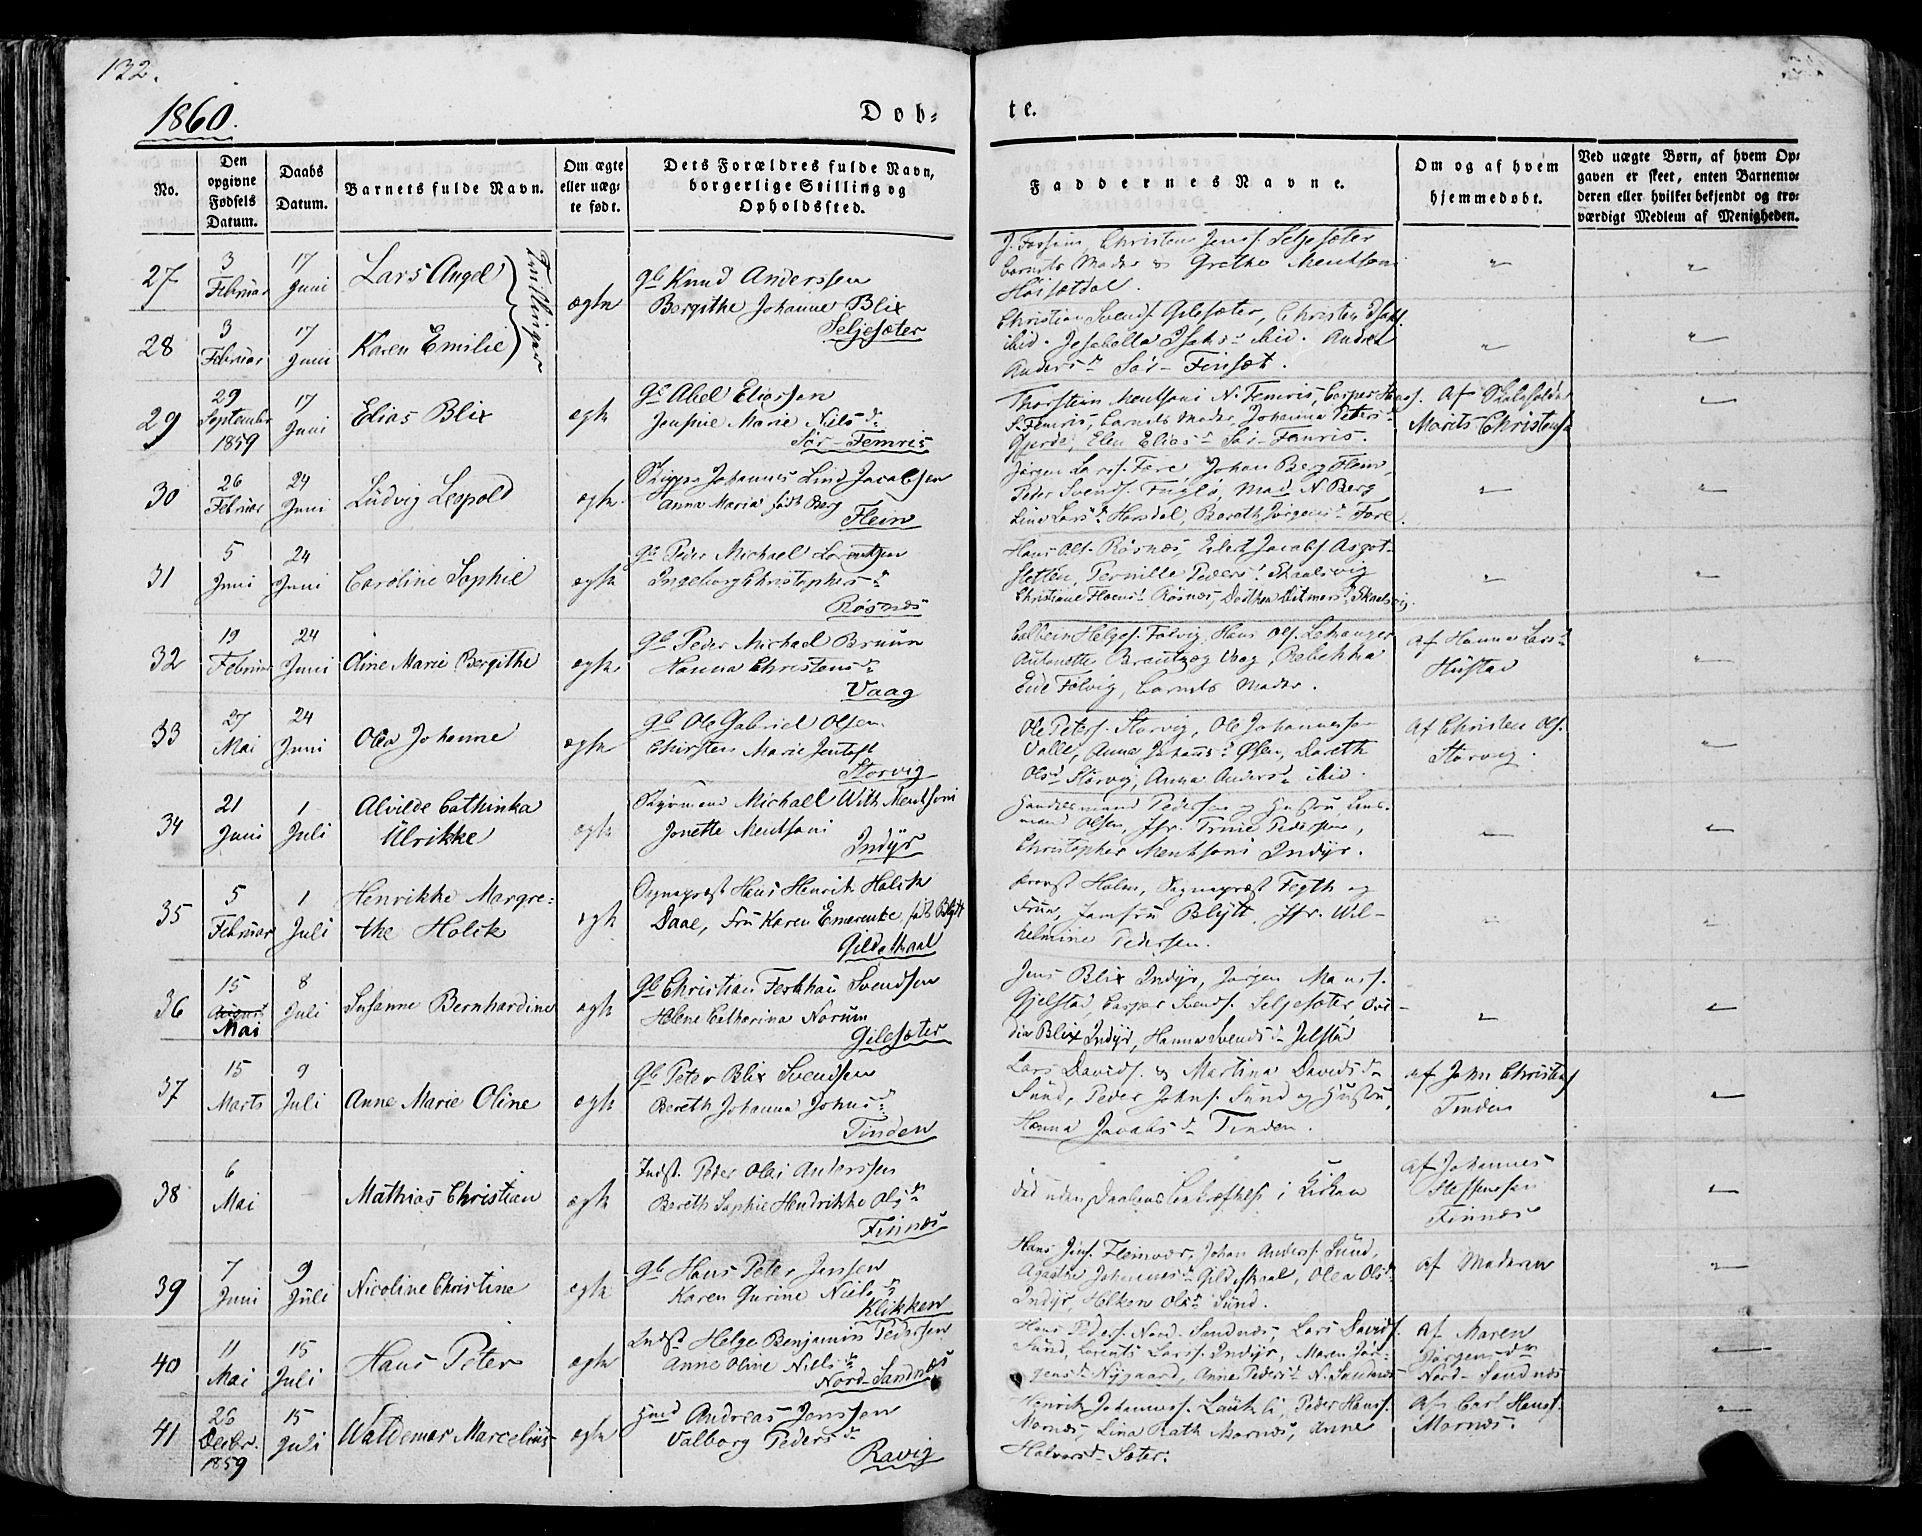 132.
1860.
Døb-
te.
No.
Den opgivne Fødsels Datum.
Daabs Datum.
Barnets fulde Navn.
Om ægte eller uæg-
te født.
Dets Forældres fulde Navn,
borgerlige Stilling og
Opholdssted.
Faddernes Navne.
Om og af hvem
hjemmedøbt.
Ved uægte Børn, af hvem Op-
gaven er skeet, enten Barnemo-
deren eller hvilket bekjendt og tro-
værdigt Medlem af Menigheden.
27
3 Februar
17 Juni
Lars Angel
Tvillinger
ægte
Gb Knud Anderssen
Bergithe Johanne Blix
Seljesæter
Christen Jens. Seljesæter
barnets Moder & Grethe Mentsoni
28
3 Februar
17 Juni
Karen Emilie
Christian Svends. Gilesæter, Christen
ibid. Jesabella Isaks d ibid. Andrea
Anders d Sør-Finset.
29
29 September 1859
17 Juni
Elias Blix
ægte
Gb Abel Eliassen
Marie Niels d
Sør-Femris
Thorstein Mentsoni N. Femris, Casper
S. Femris, barnets Moder, Johanna Peters d
Gjerde, Elen Elias d Sør-Femris.
Af
Marits Christens
30
26 Februar
24 Juni
Ludvig Leopold
ægte
Johannes Lind Jacobsen
Anna Maria født Berg
Flein
Jørgen Lars. Fore, Johan Berg Flein,
Peder Svends. Fuglø, Mad. N. Berg
Lina Lars d Horsdal, Bereth Jørgens d Fore.
31
5 Juni
24 Juni
Caroline Sophie
ægte
Gb Peder Michael Lorentzen
Ingeborg Christophers d
Røsnæs
Hans Ols. Røsnæs, Eilert Jacobs. Asgot-
stetten, Pernille Peders d Skaalsvig
Christiane d Røsnæs, Ditmers d Skaalsvig.
32
19 Februar
24 Juni
Oline Marie Bergithe
ægte
Gb Peder Michael Bruun
Hanna Christens d
Vaag
Helges. Følvig, Hans Ols.
Antonette Brantzæg Vaag, Rebekka
Eide Følvig, barnets Moder.
af Hanna Lars d
Hustad
33
27 Mai
24 Juni
Olea Johanne
ægte
Gb Ole Gabriel Olsen
Chirsten Marie Jentoft
Storvig
Ole Peters. Storvig, Ole Johannessen
Valle, Anne Johans d Øsen, Doreth
Ols d Storvig, Anna Anders d ibid.
Af Christen Ols.
Storvig.
34
21 Juni
1 Juli
Alvilde Cathinka
Ulrikke
ægte
Michael With Mentsoni
Jonette Mentsoni
Indyr
Handelsmand Pedersen og Hustru, Lens-
mand Olsen, Jfr. Trine Pedersen,
Christopher Mentsoni Indyr.
35
5 Februar
1 Juli
Henrikke Margre-
the Holck
ægte
Sognepræst Hans Henrik Holck
Daae, Fru Karen Emerentse født Blytt
Gildeskaal
Provst Holm, Sognepræst Fogth og
Frue, Jomfru Blytt, Jfr. Wil-
helmine Pedersen.
36
15 August Mai
8 Juli
Susanne Bernhardine
ægte
Gb Christian Ferkhau Svendsen
Helene Catharina Norum
Gilesæter
Jens Blix Indyr, Jørgen Mons.
Gjelstad, Casper Svends. Seljesæter, Ovi-
dia Blix Indyr, Hanna Svends d Jelstad
37
15 Marts
9 Juli
Anne Marie Oline
ægte
Gb Peter Blix Svendsen
Bereth Johanna Johns d
Tinden
Lars Davids. & Martina Davids d
Sund, Peder Johns. Sund og Hustru,
Hanna Jacobs d Tinden.
af John Christens
Tinden
38
6 Mai
Mathias Christian
ægte
Indst. Peder Olai Anderssen
Bereth Sophie Hendrikke Ols d
Finnæs
død uden Daabens Bekræftelse i Kirken
af Johannes
Steffensen
Finnæs
39
7 Juni
9 Juli
Nicoline Christine
ægte
Gb Hans Peter Jensen
Karen Gurine Niels d
Klikken
Hans Jens. Fleinvær, Johan Anders. Sund,
Agathe Johannes d Gildeskaal, Olea Ols d
Indyr, Helken Ols d Sund.
af Moderen
40
11 Mai
15 Juli
Hans Peter
ægte
Indst. Helge Benjamin Pedersen
Anne Oline Niels d
Nord-Sandnæs
Hans Peders. Nord-Sandnæs, Lars Davids.
Sund, Lorents Lars. Indyr, Maren Jør-
gens d Nygaard, Anne Peders d N. Sandnæs
af Maren
Jørgens d
Nord-Sandnæs
41
26 Decbr. 1859
15 Juli
Waldemar Marcelius
ægte
Hmd Andreas Jenssen
Valborg Peders d
Ravig
Henrik Johanness. Laukli, Peder Hans.
Mornæs, Lina Rath Mornæs, Anne
Halvors d Sæter.
af Carl Hans.
Mornæs.